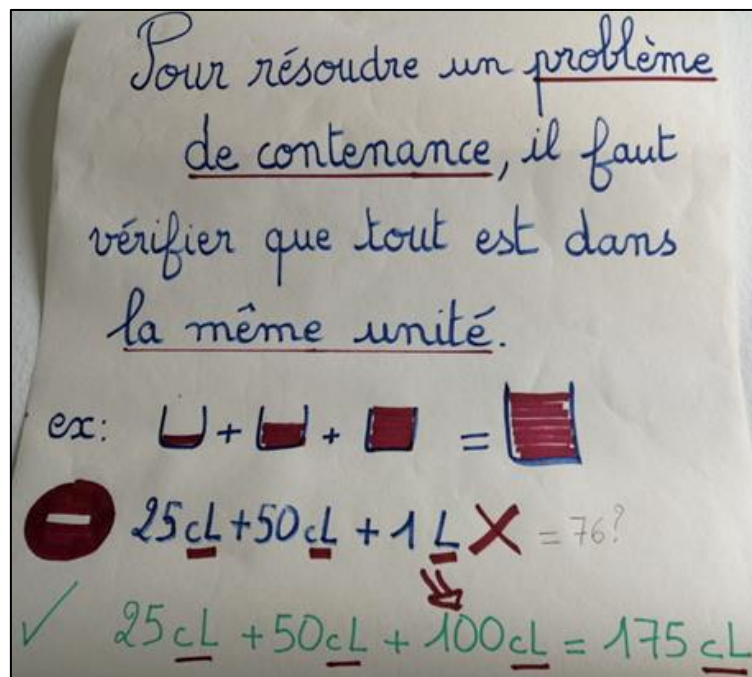 Pour résoudre un problème
de contenance, il faut
vérifier que tout est dans
la même unité.
ex: + + =
25cL+50cL+1L X =76?
✓ 25cL+50cL+100cL=175cL